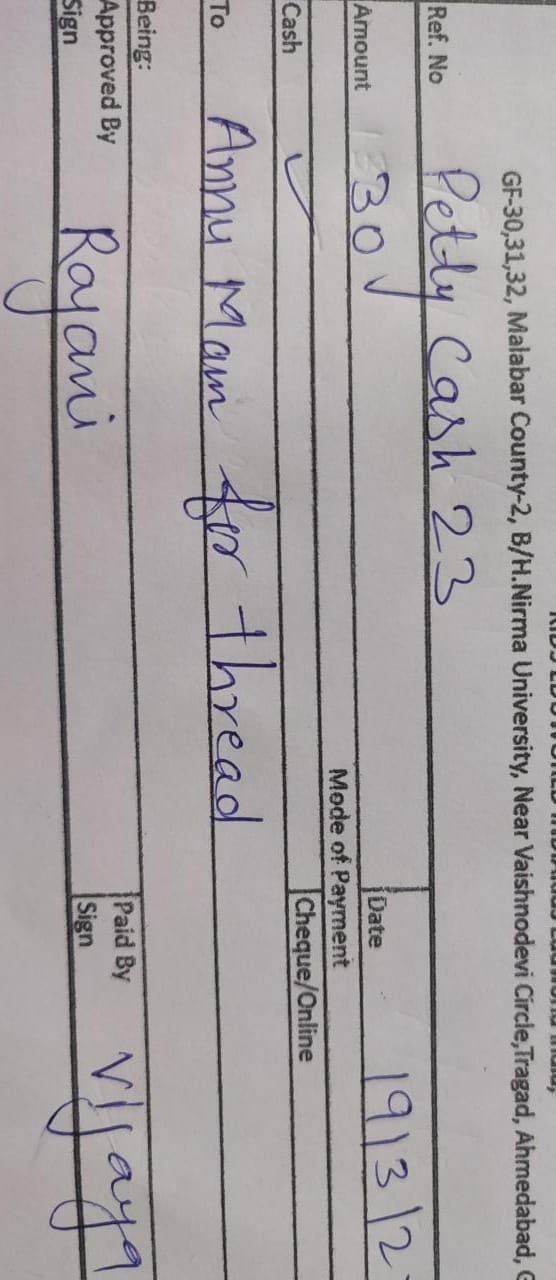 GF-30,31,32, Malabar County-2, B/H.Nirma University, Near Vaishnodevi Circle,Tragad, Ahmedabad, G
Ref. No Petty Cash 23
Amount 30 Date 19/3/2
Mode of Payment
Cash ✓ Cheque/Online
To Annu Mam for thread
Being:
Approved By Rajani Paid By Vijaya
Sign Sign